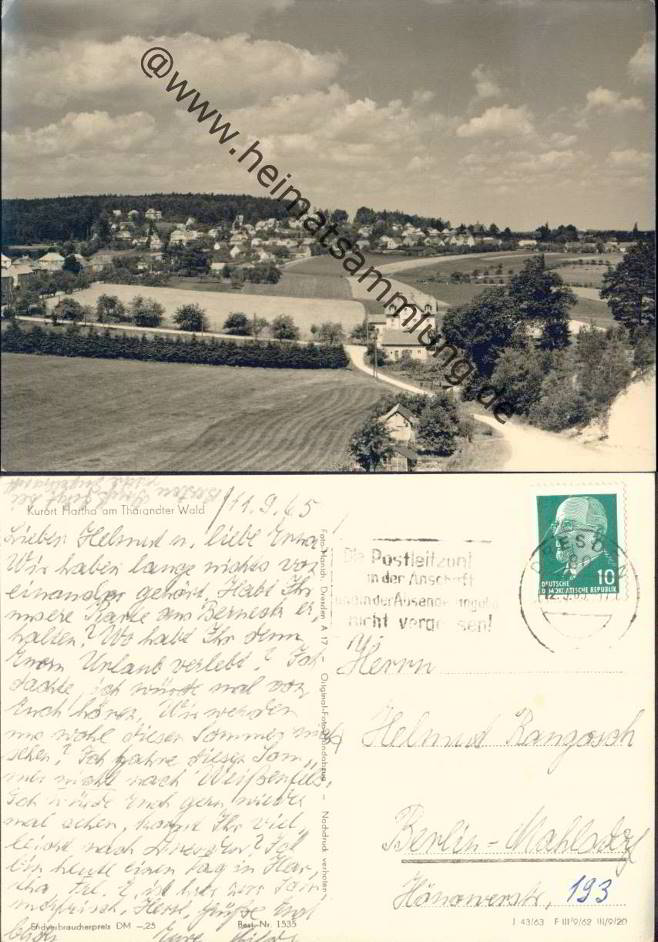 @www.heimatsammlung.de
Kurort Hartha am Tharandter Wald
11.9.65
Lieber Helmut u. liebe Erna
Wir haben lange nichts von
einander gehört. Habt Ihr
unsere Karte aus Berneck er,
halten? Wo habt Ihr denn
Euern Urlaub verlebt? Ich
dachte, ich würde mal von
Euch hören. Wir werden
uns wohl diesen Sommer nicht
sehen? Ich fahre diesen Som,,
mer nicht nach Weißenfels.
Ich würde Euch gern wieder
mal sehen, kommt Ihr viel
leicht nach Dresden? Ich
bin heute einen Tag in Har,
tha,
Herzl. Grüße Euch
Eure
Endverbraucherpreis DM -,25
Best.-Nr. 1535
Foto-Hanich, Dresden A 17 – Original-Foto-Handabzug – Nachdruck verboten
Die Postleitzahl
in der Anschrift
und in der Absenderangabe
nicht vergessen!
DRESDEN
12.9.65-17
10
DEUTSCHE
DEMOKRATISCHE REPUBLIK
Herrn
Helmut Rangosch
Berlin-Mahlsdorf
Hönowerstr. 193
J 43/63 F III/9/62 III/9/20